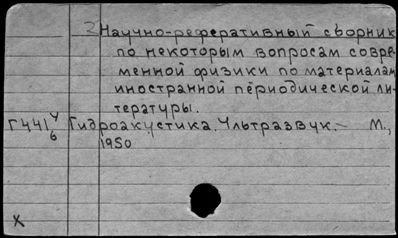 Научно-реферативный сборник
по некоторым вопросам совре-
менной физики по материалам
иностранной периодической ли-
тературы.
Г441 у/6 Гидроакустика. Ультразвук. - М.,
1950
X